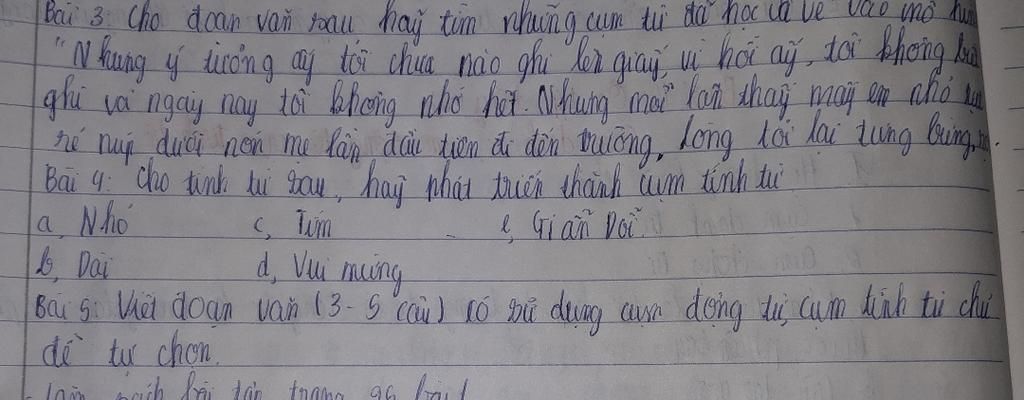 Bài 3: Cho đoạn văn sau hãy tìm những cụm từ đã học và vẽ vào mô hình
"Những ý tưởng ấy tôi chưa nào ghi lên giấy, vì hồi ấy, tôi không biết
ghi và ngày nay tôi không nhớ hết. Nhưng mỗi lần thấy mấy em nhỏ rụt
rè núp dưới nón mẹ lần đầu tiên đi đến trường, lòng tôi lại tưng bừng,
Bài 4: Cho tính từ sau, hãy phát triển thành cụm tính từ
a, Nhỏ c, Tím e, Gian Dối
b, Dài d, Vui mừng
Bài 5: Viết đoạn văn (3-5 câu) có sử dụng cụm động từ, cụm tính từ chủ
đề tự chọn.
- Làm bài tập trang 96